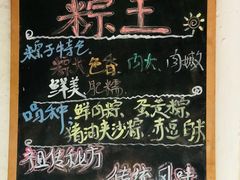 粽王
粽子特色
粽大 色香 肉大 肉嫩
鲜美 肥糯
品种 鲜肉粽 蛋黄粽
猪油夹沙粽 赤豆
祖传秘方
传统风味